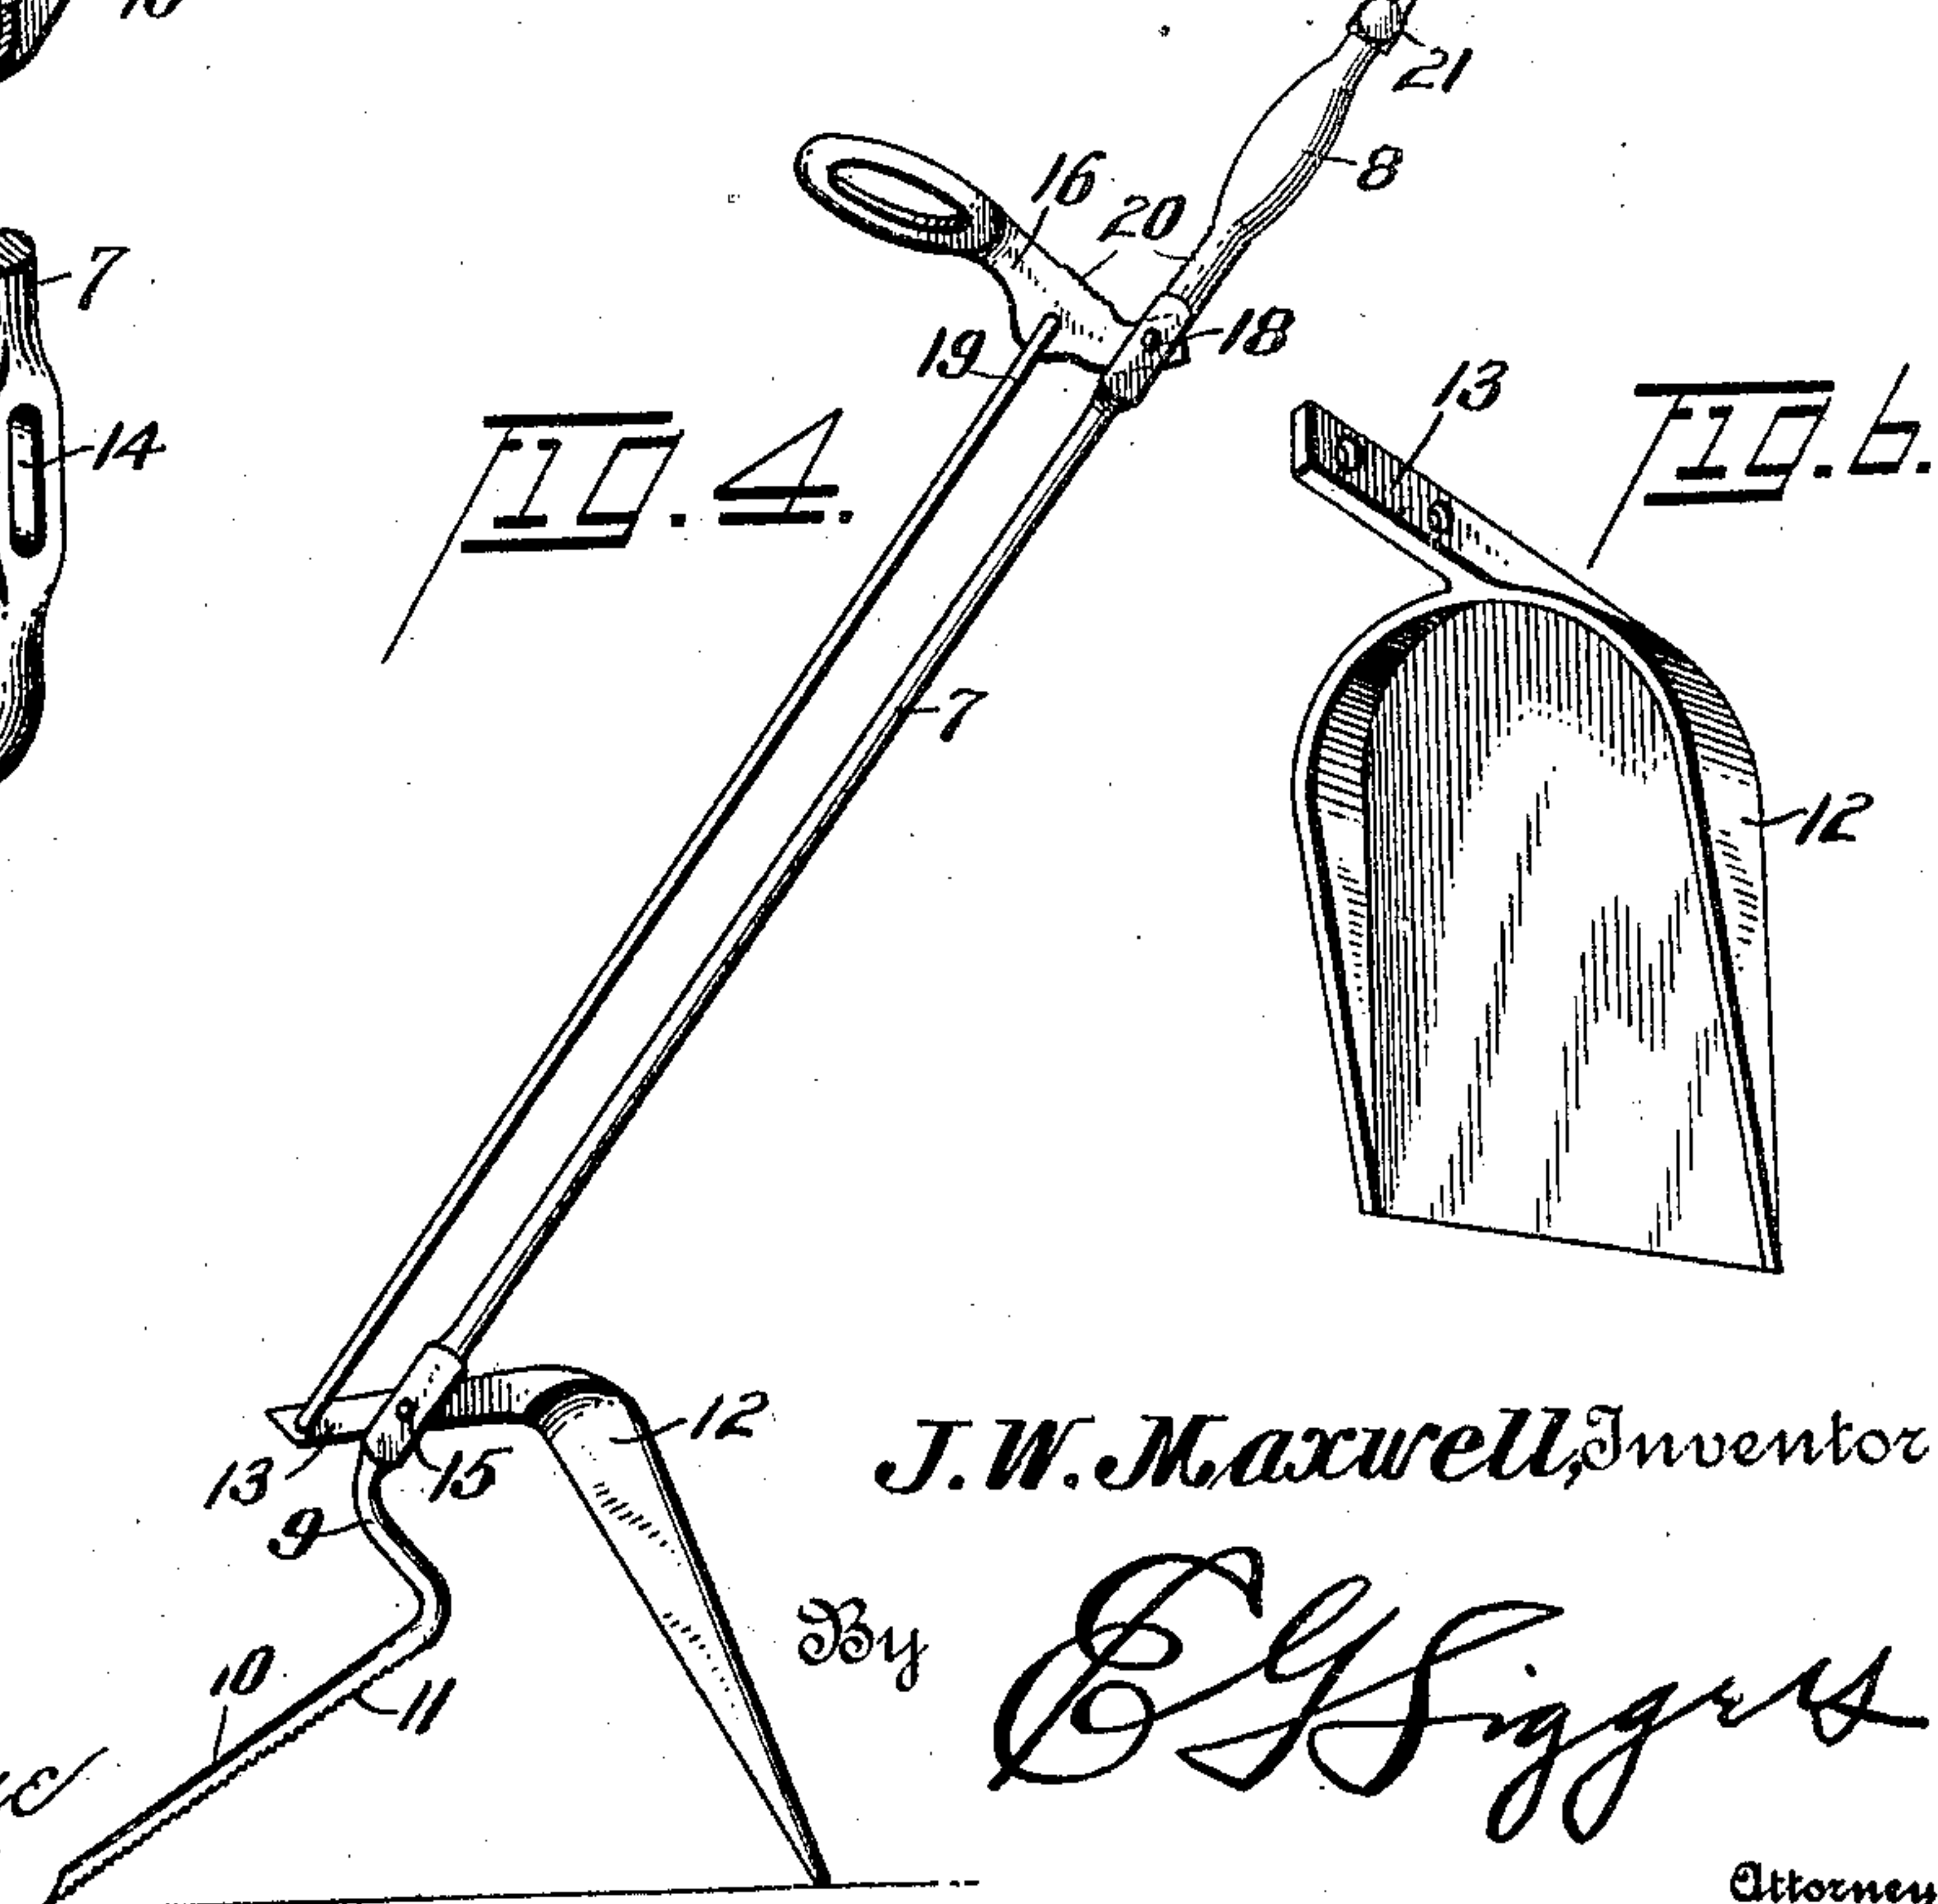 21
8
16
20
7
18
19
13
14
Fig. 4.
Fig. 6.
7
12
12
13
15
9
J. W. Maxwell, Inventor
By
E G Siggers
10
11
Attorney